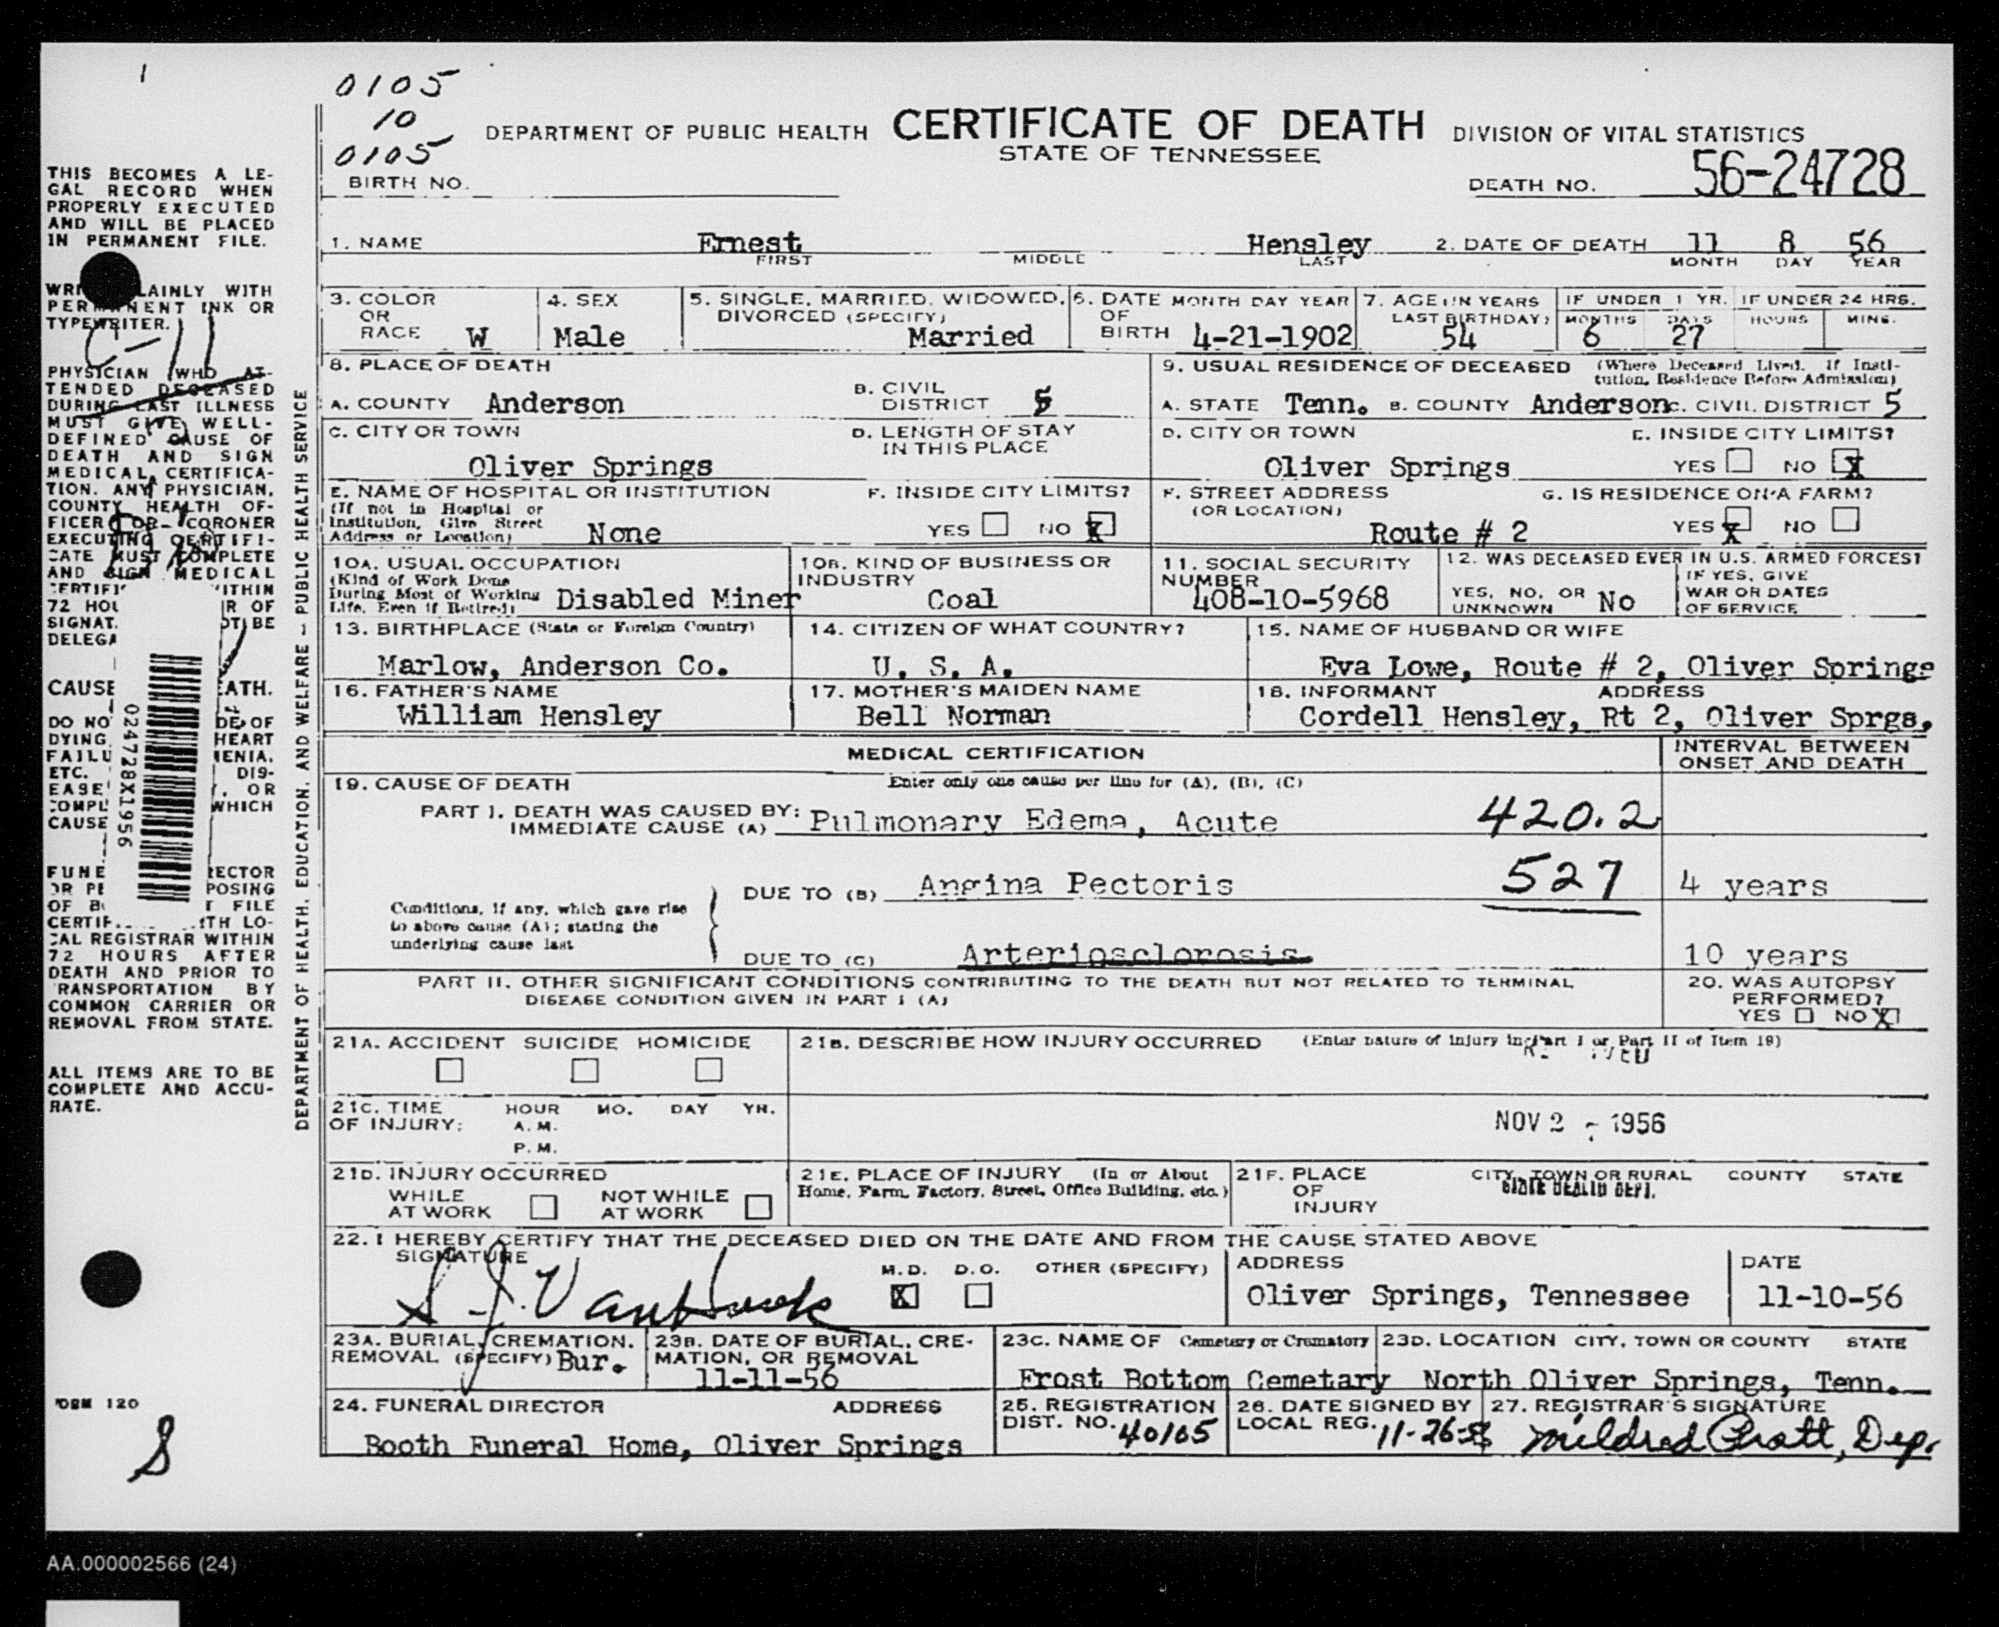 1
0105
10
0105
DEPARTMENT OF PUBLIC HEALTH CERTIFICATE OF DEATH DIVISION OF VITAL STATISTICS
STATE OF TENNESSEE
BIRTH NO. DEATH NO. 56-24728
1. NAME Ernest Hensley 2. DATE OF DEATH 11 8 56
FIRST MIDDLE LAST MONTH DAY YEAR
3. COLOR OR RACE W 4. SEX Male 5. SINGLE, MARRIED, WIDOWED, DIVORCED (SPECIFY) Married 6. DATE OF BIRTH MONTH DAY YEAR 4-21-1902 7. AGE (IN YEARS LAST BIRTHDAY) 54 IF UNDER 1 YR. MONTHS 6 DAYS 27 IF UNDER 24 HRS. HOURS MINS.
8. PLACE OF DEATH
A. COUNTY Anderson B. CIVIL DISTRICT 5
C. CITY OR TOWN Oliver Springs D. LENGTH OF STAY IN THIS PLACE
E. NAME OF HOSPITAL OR INSTITUTION (If not in Hospital or Institution, Give Street Address or Location) None F. INSIDE CITY LIMITS? YES NO X
9. USUAL RESIDENCE OF DECEASED (Where Deceased Lived. If Institution, Residence Before Admission)
A. STATE Tenn. B. COUNTY Anderson C. CIVIL DISTRICT 5
D. CITY OR TOWN Oliver Springs E. INSIDE CITY LIMITS? YES NO X
F. STREET ADDRESS (OR LOCATION) Route # 2 G. IS RESIDENCE ON A FARM? YES X NO
10A. USUAL OCCUPATION (Kind of Work Done During Most of Working Life, Even if Retired) Disabled Miner 10B. KIND OF BUSINESS OR INDUSTRY Coal
11. SOCIAL SECURITY NUMBER 408-10-5968 12. WAS DECEASED EVER IN U.S. ARMED FORCES? YES, NO, OR UNKNOWN No IF YES, GIVE WAR OR DATES OF SERVICE
13. BIRTHPLACE (State or Foreign Country) Marlow, Anderson Co. 14. CITIZEN OF WHAT COUNTRY? U. S. A. 15. NAME OF HUSBAND OR WIFE Eva Lowe, Route # 2, Oliver Springs
16. FATHER'S NAME William Hensley 17. MOTHER'S MAIDEN NAME Bell Norman 18. INFORMANT ADDRESS Cordell Hensley, Rt 2, Oliver Sprgs,
MEDICAL CERTIFICATION INTERVAL BETWEEN ONSET AND DEATH
19. CAUSE OF DEATH Enter only one cause per line for (A), (B), (C)
PART I. DEATH WAS CAUSED BY:
IMMEDIATE CAUSE (A) Pulmonary Edema, Acute 420.2
DUE TO (B) Angina Pectoris 527 4 years
Conditions, if any, which gave rise
to above cause (A); stating the
underlying cause last
DUE TO (C) Arteriosclorosis 10 years
PART II. OTHER SIGNIFICANT CONDITIONS CONTRIBUTING TO THE DEATH BUT NOT RELATED TO TERMINAL
DISEASE CONDITION GIVEN IN PART I (A)
20. WAS AUTOPSY PERFORMED? YES NO X
21A. ACCIDENT SUICIDE HOMICIDE 21B. DESCRIBE HOW INJURY OCCURRED (Enter nature of injury in Part I or Part II of Item 19)
21C. TIME OF INJURY: HOUR MO. DAY YR.
A. M.
P. M.
NOV 2 - 1956
21D. INJURY OCCURRED WHILE AT WORK NOT WHILE AT WORK 21E. PLACE OF INJURY (In or About Home, Farm, Factory, Street, Office Building, etc.) 21F. PLACE OF INJURY CITY, TOWN OR RURAL COUNTY STATE
STATE HEALTH DEPT.
22. I HEREBY CERTIFY THAT THE DECEASED DIED ON THE DATE AND FROM THE CAUSE STATED ABOVE
SIGNATURE S. J. VanHook M.D. X D.O. OTHER (SPECIFY) ADDRESS Oliver Springs, Tennessee DATE 11-10-56
23A. BURIAL, CREMATION, REMOVAL (SPECIFY) Bur. 23B. DATE OF BURIAL, CREMATION, OR REMOVAL 11-11-56 23C. NAME OF Cemetery or Crematory Frost Bottom Cemetary 23D. LOCATION CITY, TOWN OR COUNTY STATE North Oliver Springs, Tenn.
24. FUNERAL DIRECTOR ADDRESS Booth Funeral Home, Oliver Springs 25. REGISTRATION DIST. NO. 40105 26. DATE SIGNED BY LOCAL REG. 11-26-56 27. REGISTRAR'S SIGNATURE Mildred Pratt, Dep.
THIS BECOMES A LE-
GAL RECORD WHEN
PROPERLY EXECUTED
AND WILL BE PLACED
IN PERMANENT FILE.
PLAINLY WITH
PERMANENT INK OR
TYPEWRITER.
C-11
PHYSICIAN WHO AT-
TENDED DECEASED
DURING LAST ILLNESS
MUST GIVE WELL-
DEFINED CAUSE OF
DEATH AND SIGN
MEDICAL CERTIFICA-
TION. ANY PHYSICIAN,
COUNTY HEALTH OF-
FICER OR CORONER
EXECUTING CERTIFI-
CATE MUST COMPLETE
AND SIGN MEDICAL
72
CAUSE
DO
DYING HEART
ETC. DIS-
EASE OR
WHICH
CAUSE
024728X1956
OF FILE
LO-
CAL REGISTRAR WITHIN
72 HOURS AFTER
DEATH AND PRIOR TO
TRANSPORTATION BY
COMMON CARRIER OR
REMOVAL FROM STATE.
ALL ITEMS ARE TO BE
COMPLETE AND ACCU-
RATE.
DEPARTMENT OF HEALTH, EDUCATION, AND WELFARE - PUBLIC HEALTH SERVICE
FORM 120
S
AA.000002566 (24)